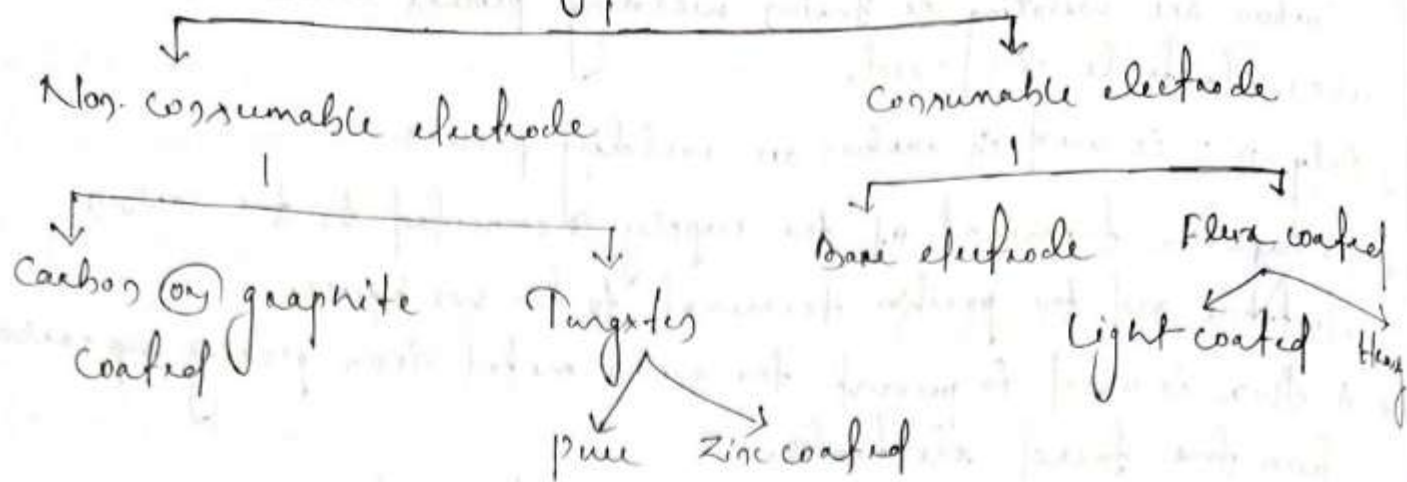 Non. consumable electrode
consumable electrode
Carbon or graphite
coated
Tungsten
Bare electrode
Flux coated
Light coated
Heavy
pure
zinc coated